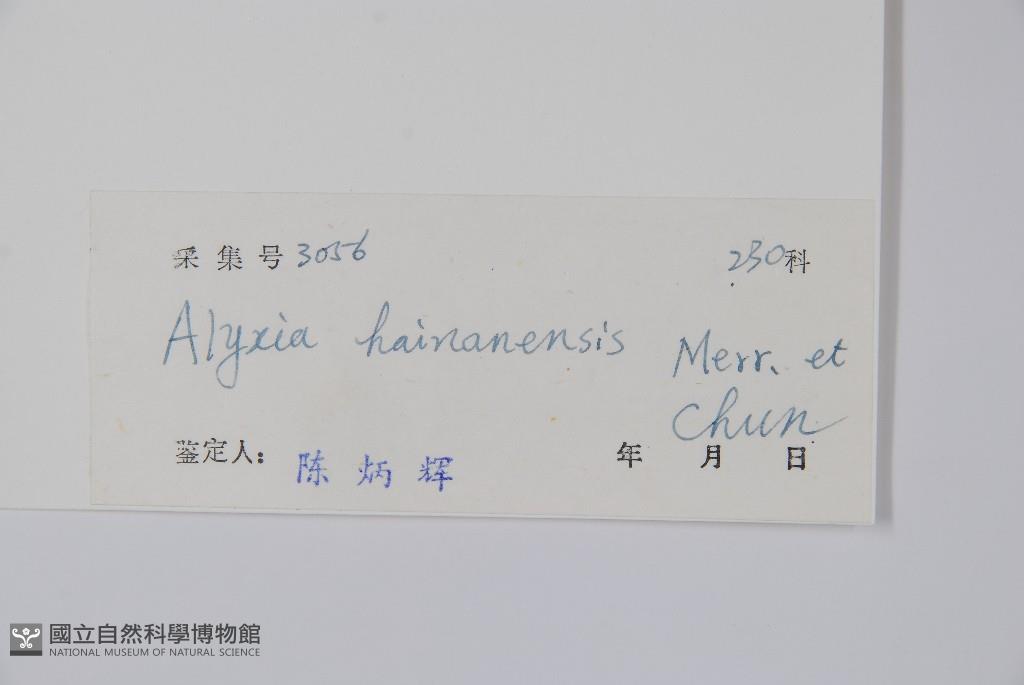 采集号 3056 230科
Alyxia hainanensis Merr. et
Chun
鉴定人: 陈炳辉 年 月 日
國立自然科學博物館
NATIONAL MUSEUM OF NATURAL SCIENCE